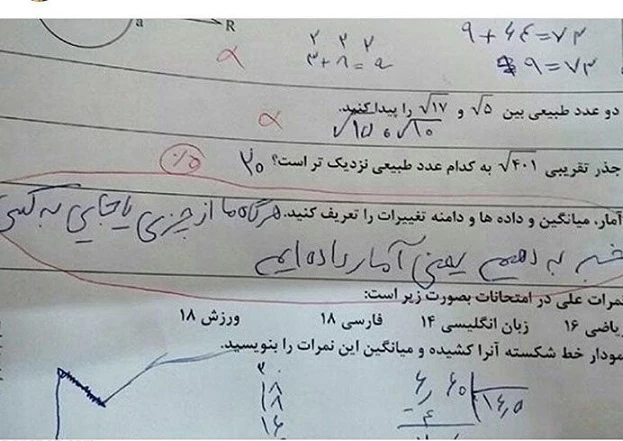 a R
۹ + ۶۴ = ۷۳
۲ ۲ ۲
۳ + ۸ = ۹
۹ = ۷۳
دو عدد طبیعی بین √۵ و √۱۷ را پیدا کنید.
√۱۵ و √۱۰
جذر تقریبی √۴۰۱ به کدام عدد طبیعی نزدیک تر است؟ ۲۰
آمار، میانگین و داده ها و دامنه تغییرات را تعریف کنید. هرگاه ما از چیزی یا جایی به کسی
خبر به دهیم یعنی آمار داده ایم
نمرات علی در امتحانات بصورت زیر است:
ریاضی ۱۶ زبان انگلیسی ۱۴ فارسی ۱۸ ورزش ۱۸
نمودار خط شکسته آنرا کشیده و میانگین این نمرات را بنویسید.
۲۰
۱۸
۱۸
۱۶
۱۶٫۵